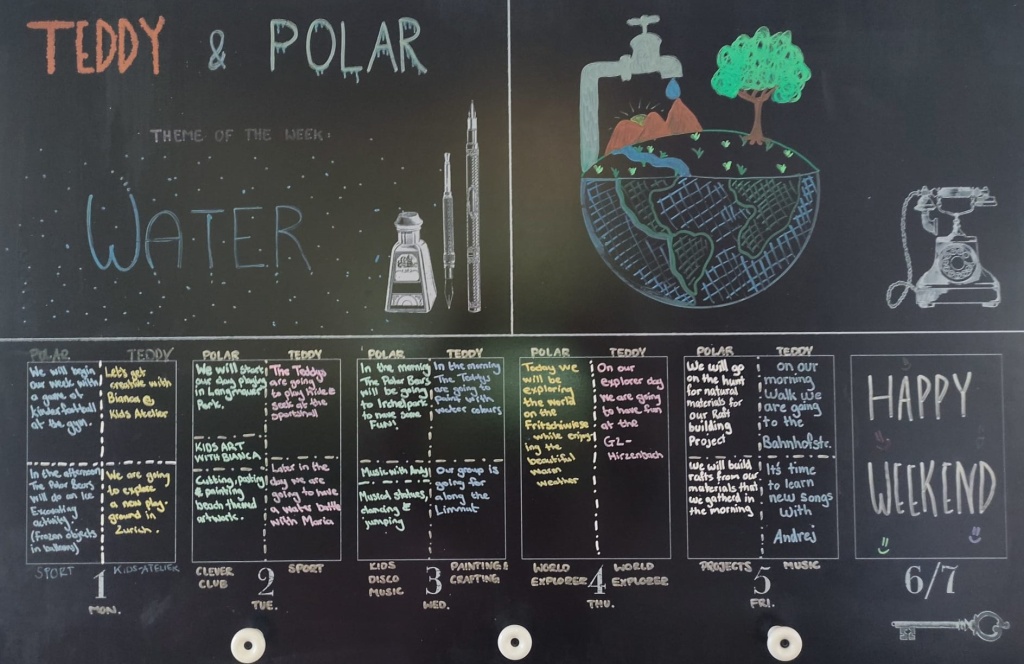 TEDDY & POLAR
THEME OF THE WEEK:
WATER
POLAR
We will begin
our week with
a game at
kinder football
at the gym.
In the afternoon
The Polar Bears
will do an Ice
Excavating
activity.
(frozen objects
in balloons)
SPORT
TEDDY
Let's get
creative with
Bianca @
Kids Atelier
We are going
to explore
a new play
ground in
Zurich.
KIDS-ATELIER
1
MON.
POLAR
We will start
our day playing
in Langmauer
Park.
KIDS ART
WITH BIANCA
Cutting, pasting
& painting
beach themed
artwork.
CLEVER
CLUB
TEDDY
The Teddys
are going
to play Hide &
Seek at the
sportshall
Later in the
day we are
going to have
a water battle
with Maria
SPORT
2
TUE.
POLAR
In the morning
The Polar Bears
will be going
to Irchelpark
to have some
Fun!
Music with Andy
Musical statues,
dancing &
jumping
KIDS
DISCO
MUSIC
TEDDY
In the morning
The Teddys
are going to
paint with
water colours
Our group is
going for
a long the
Limmat
PAINTING &
CRAFTING
3
WED.
POLAR
Today we
will be
exploring
the world
on the
Fritschiwiese
while enjoy
ing the
beautiful
warm
weather
WORLD
EXPLORER
TEDDY
On our
Explorer day
we are going
to have fun
at the
GZ-
Hirzenbach
WORLD
EXPLORER
4
THU.
POLAR
We will go
on the hunt
for natural
materials for
our Raft
building
Project
We will build
rafts from our
materials that
we gatherd in
the morning
PROJECTS
TEDDY
on our
morning
Walk we
are going
to the
Bahnhofstr.
It's time
to learn
new songs
with
Andrej
MUSIC
5
FRI.
HAPPY
WEEKEND
6/7